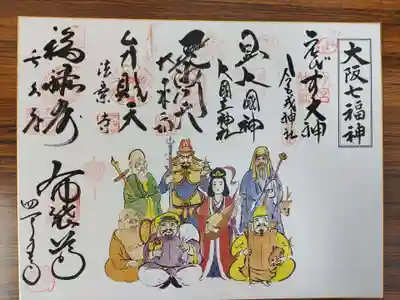 大阪七福神
ゑびす大神
今宮戎神社
日出大國神
大國主神社
毘沙門天
大乗坊
弁財天
法案寺
福禄寿
長久寺
布袋尊
四天王寺